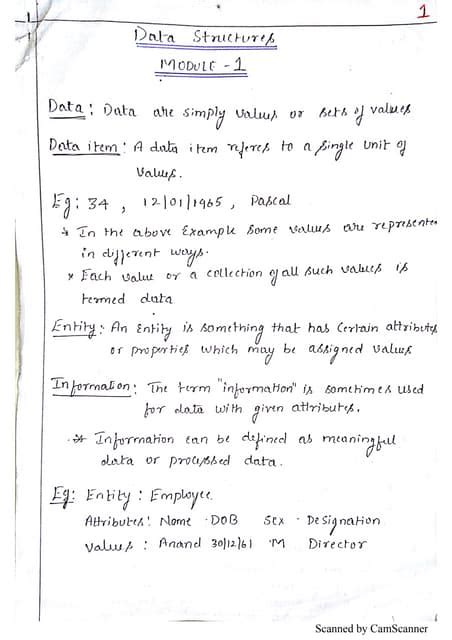 1
Data Structures
MODULE - 1
Data : Data are simply values or sets of values
Data item : A data item referes to a single unit of
values.
Eg : 34 , 12/01/1965 , Pascal
* In the above Example some values are represente
in different ways.
* Each value or a collection of all such values is
termed data
Entity : An Entity is something that has certain attributes
or properties which may be assigned values
Information : The term "information" is sometimes used
for data with given attributes.
* Information can be defined as meaningful
data or processed data.
Eg: Entity : Employee
Attributes: Name DOB Sex Designation
values : Anand 30/12/61 M Director
Scanned by CamScanner